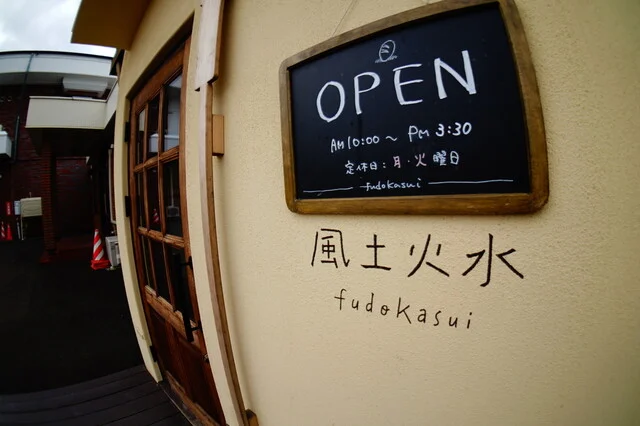 OPEN
AM10:00~PM3:30
定休日:月・火曜日
fudokasui
風土火水
fudokasui